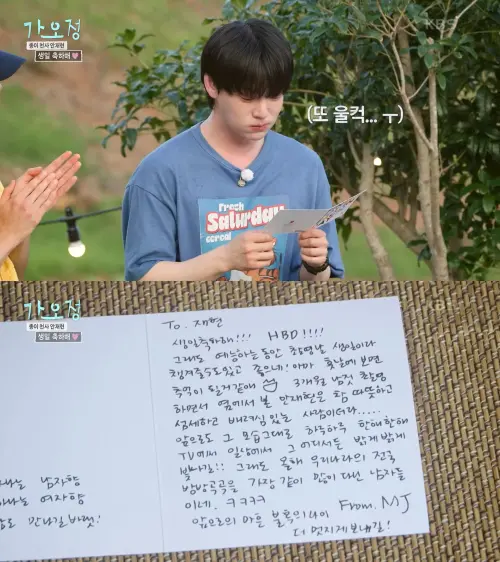 가오정
종이 천사 안재현
생일 축하해
KBS
(또 울컥... ㅜ)
Fresh
Saturday
cereal
가오정
종이 천사 안재현
생일 축하해
To. 재현
생일축하해!!! HBD!!!!
그래도 예능하는동안 촬영날 생일이라
챙겨줄수도있고 좋으네! 아마 훗날에 보면
추억이 될거같애 3개월 남짓 촬영
하면서 옆에서 본 안재현은 참 따뜻하고
섬세하고 배려심 있는 사람이더라.....
앞으로도 그 모습그대로 화목하루 한해한해
TV에서 일상에서 그 어디서든 밝게 밝게
빛나길!! 그래도 올해 우리나라의 전국
방방곡곡을 가장 같이 많이 다닌 남자들
이네. ㅋㅋㅋㅋ
앞으로의 마흔 불혹의나이 From. MJ
더 멋지게 보내길!
나는 남자향
하나는 여자향
만나길바래!